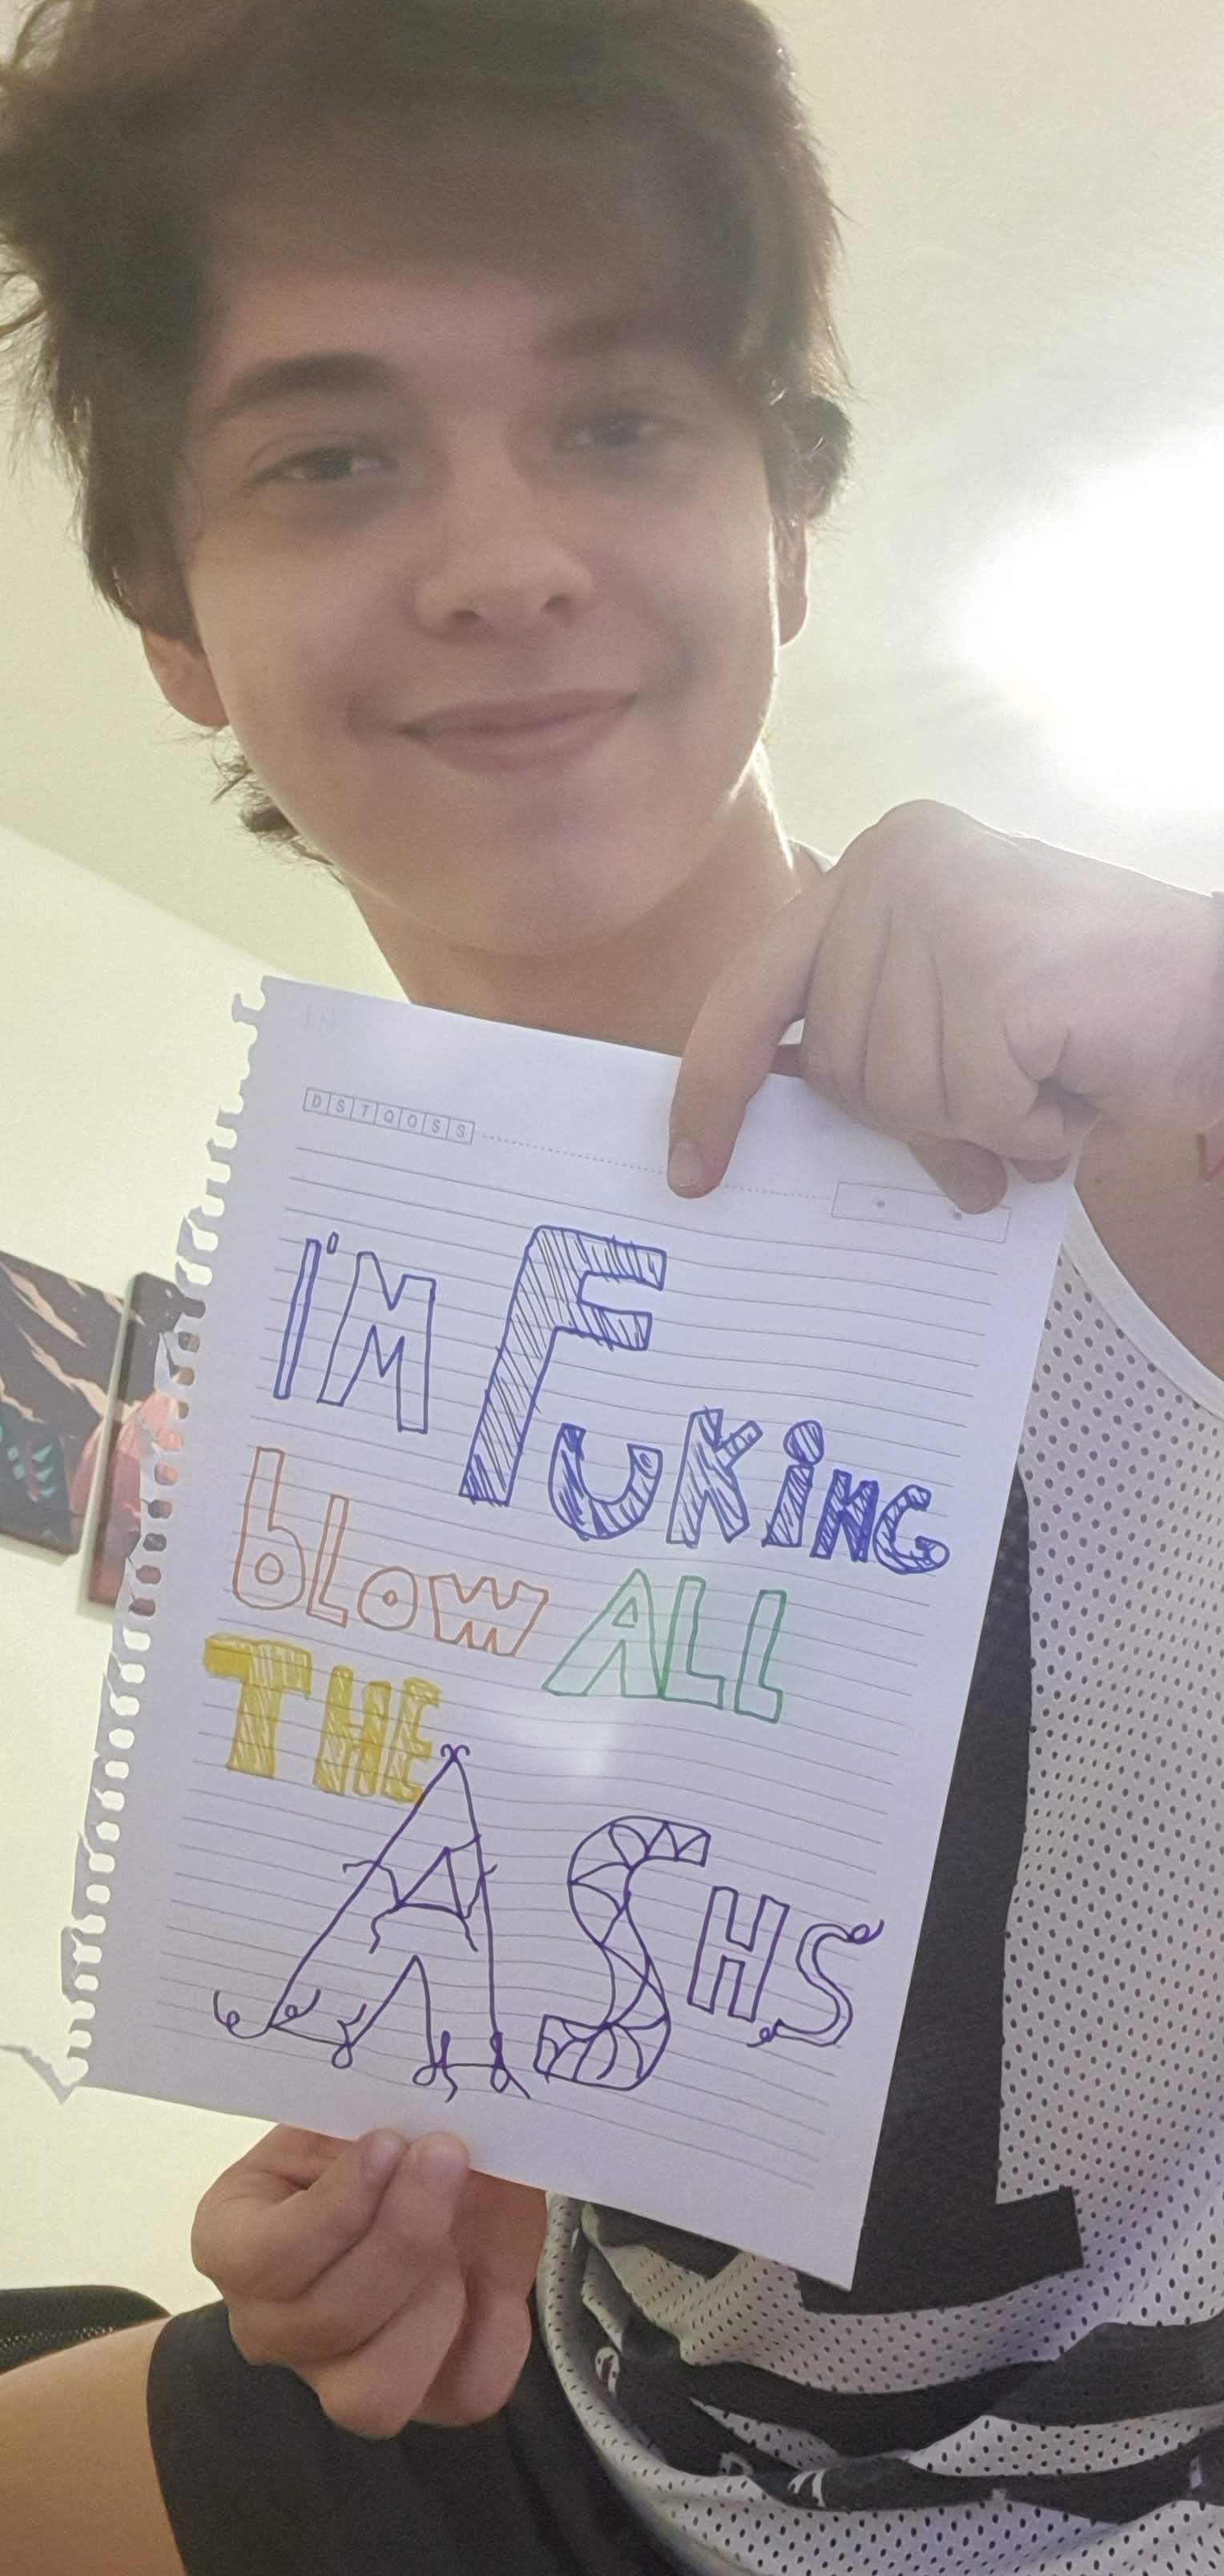 D S T Q Q S S
I'M FUKiNG
bLoW ALL
THE
ASHS